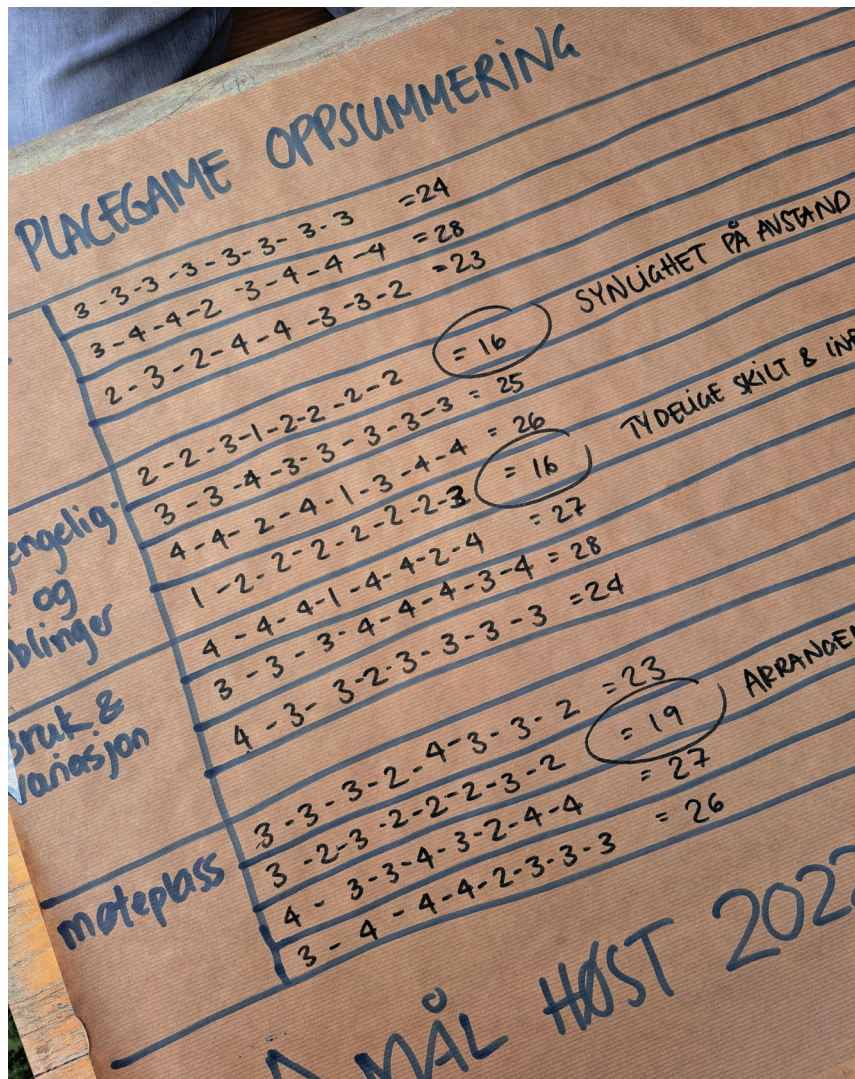 PLACEGAME OPPSUMMERING
3-3-3-3-3-3-3-3 =24
3-4-4-2-3-4-4-4 =28
2-3-2-4-4-3-3-2 =23
2-2-3-1-2-2-2-2 =16 SYNLIGHET PÅ AVSTAND
3-3-4-3-3-3-3-3 =25
4-4-2-4-1-3-4-4 =26
1-2-2-2-2-2-2-3 =16 TYDELIGE SKILT & INF
4-4-4-1-4-4-2-4 =27
3-3-3-4-4-4-3-4 =28
4-3-3-2-3-3-3-3 =24
3-3-3-2-4-3-3-2 =23
3-2-3-2-2-2-3-2 =19 ARRANGE
4-3-3-4-3-2-4-4 =27
3-4-4-4-2-3-3-3 =26
engelig-
og
blinger
Bruk &
variasjon
møteplass
MÅL HØST 202